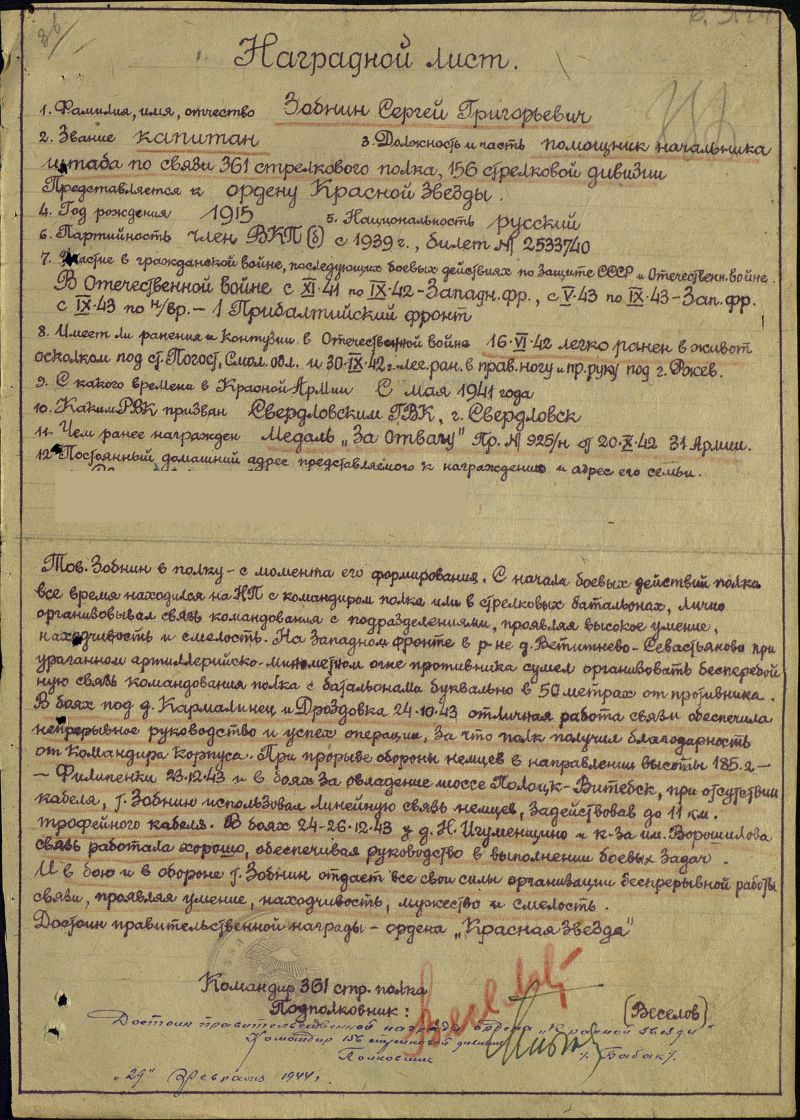 Наградной лист.
1. Фамилия, имя, отчество Зобнин Сергей Григорьевич
2. Звание капитан 3. Должность и часть помощник начальника
штаба по связи 361 стрелкового полка, 156 стрелковой дивизии
Представляется к ордену Красной Звезды.
4. Год рождения 1915 5. Национальность русский
6. Партийность член ВКП(б) с 1939 г., билет № 2533740
7. Участие в гражданской войне, последующих боевых действиях по защите СССР и Отечественн. войне
В Отечественной войне с XI.41 по IX.42 - Западн. фр., с V.43 по IX.43 - Зап. фр.
с IX.43 по н/вр. - 1 Прибалтийский фронт
8. Имеет ли ранения и контузии в Отечественной войне 16.VI.42 легко ранен в живот
осколком под ст. Погост, Смол. обл. и 30.IX.42 г. лег. ран. в прав. ногу и пр. руку под г. Ржев.
9. С какого времени в Красной Армии С мая 1941 года
10. Каким РВК призван Свердловским ГВК, г. Свердловск
11. Чем ранее награжден Медаль „За Отвагу" Пр. № 925/н от 20.X.42 31 Армии.
12. Постоянный домашний адрес представляемого к награждению и адрес его семьи.
Тов. Зобнин в полку - с момента его формирования. С начала боевых действий полка
все время находился на НП с командиром полка или в стрелковых батальонах, лично
организовывал связь командования с подразделениями, проявляя высокое умение,
находчивость и смелость. На Западном фронте в р-не д. Ветитнево - Севастьяново при
ураганном артиллерийско-минометном огне противника сумел организовать бесперебой
ную связь командования полка с батальонами буквально в 50 метрах от противника.
В боях под д. Кармалинец и Дроздовка 24.10.43 отличная работа связи обеспечила
непрерывное руководство и успех операции, за что полк получил благодарность
от Командира Корпуса. При прорыве обороны немцев в направлении высоты 185.2 -
- Филипенки 23.12.43 и в боях за овладение шоссе Полоцк-Витебск, при отсутствии
кабеля, т. Зобнин использовал линейную связь немцев, задействовав до 11 км.
трофейного кабеля. В боях 24-26.12.43 у д. Н. Игуменщино и к-за им. Ворошилова
связь работала хорошо, обеспечивая руководство в выполнении боевых задач.
И в бою и в обороне т. Зобнин отдает все свои силы организации беспрерывной работы
связи, проявляя умение, находчивость, мужество и смелость.
Достоин правительственной награды - ордена „Красная звезда"
Командир 361 стр. полка
Подполковник: (Веселов)
Достоин правительственной награды ордена „Красной звезды"
Командир 156 стрелковой дивизии
Полковник /Бабак/.
„29" февраля 1944 г.